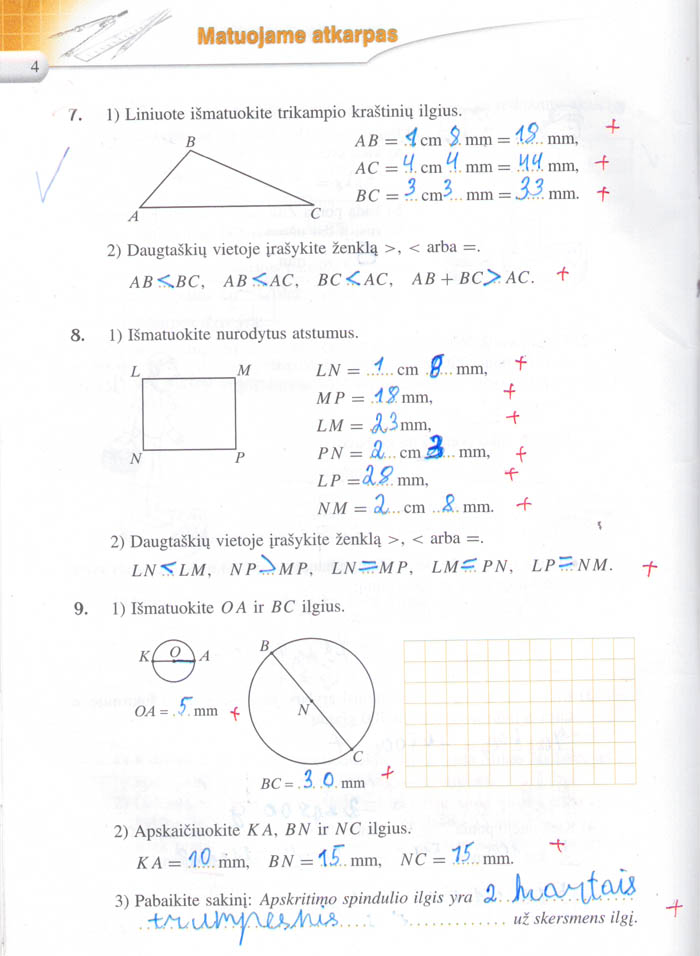 Matuojame atkarpas
4
7. 1) Liniuote išmatuokite trikampio kraštinių ilgius.
B
A
C
AB = 1 cm 8 mm = 18 mm, +
AC = 4 cm 4 mm = 44 mm, +
BC = 3 cm 3 mm = 33 mm. +
2) Daugtaškių vietoje įrašykite ženklą >, < arba =.
AB < BC, AB < AC, BC < AC, AB + BC > AC. +
8. 1) Išmatuokite nurodytus atstumus.
L M
N P
LN = 1 cm 8 mm, +
MP = 18 mm, +
LM = 23 mm, +
PN = 2 cm 3 mm, +
LP = 28 mm, +
NM = 2 cm 8 mm. +
2) Daugtaškių vietoje įrašykite ženklą >, < arba =.
LN < LM, NP > MP, LN = MP, LM = PN, LP = NM. +
9. 1) Išmatuokite OA ir BC ilgius.
K O A
OA = 5 mm +
B
N
C
BC = 30 mm +
2) Apskaičiuokite KA, BN ir NC ilgius.
KA = 10 mm, BN = 15 mm, NC = 15 mm. +
3) Pabaikite sakinį: Apskritimo spindulio ilgis yra 2 kartais
trumpesnis už skersmens ilgį. +